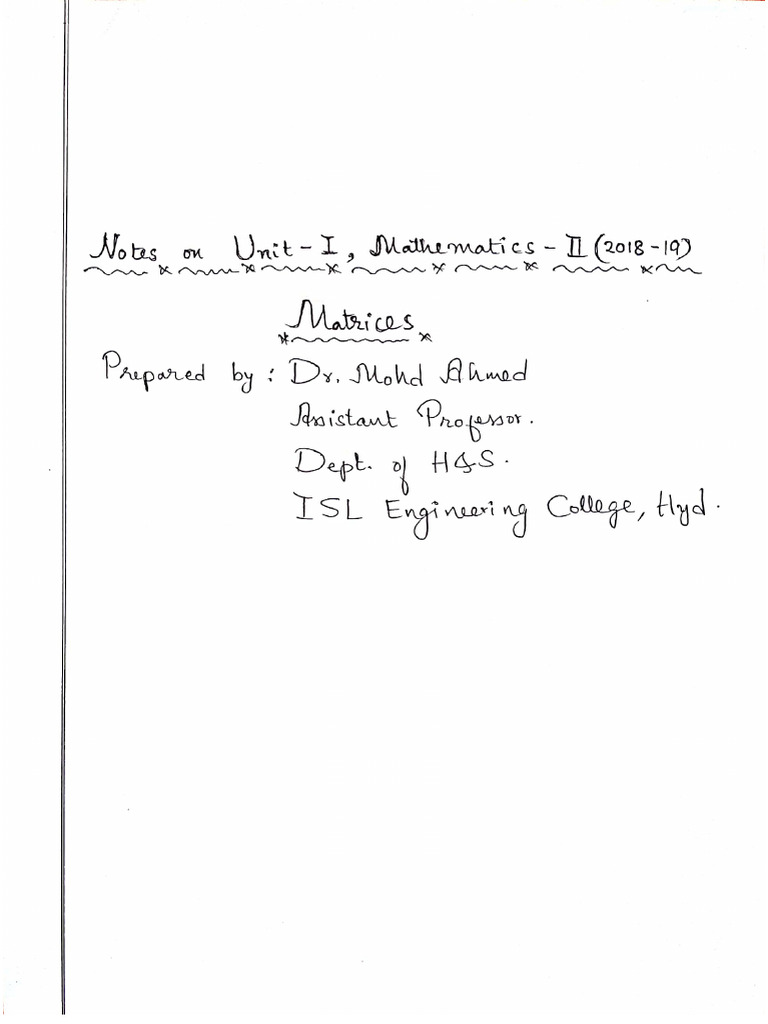 Notes on Unit-I, Mathematics-II (2018-19)
Matrices
Prepared by : Dr. Mohd Ahmed
Assistant Professor.
Dept. of H&S.
ISL Engineering College, Hyd.